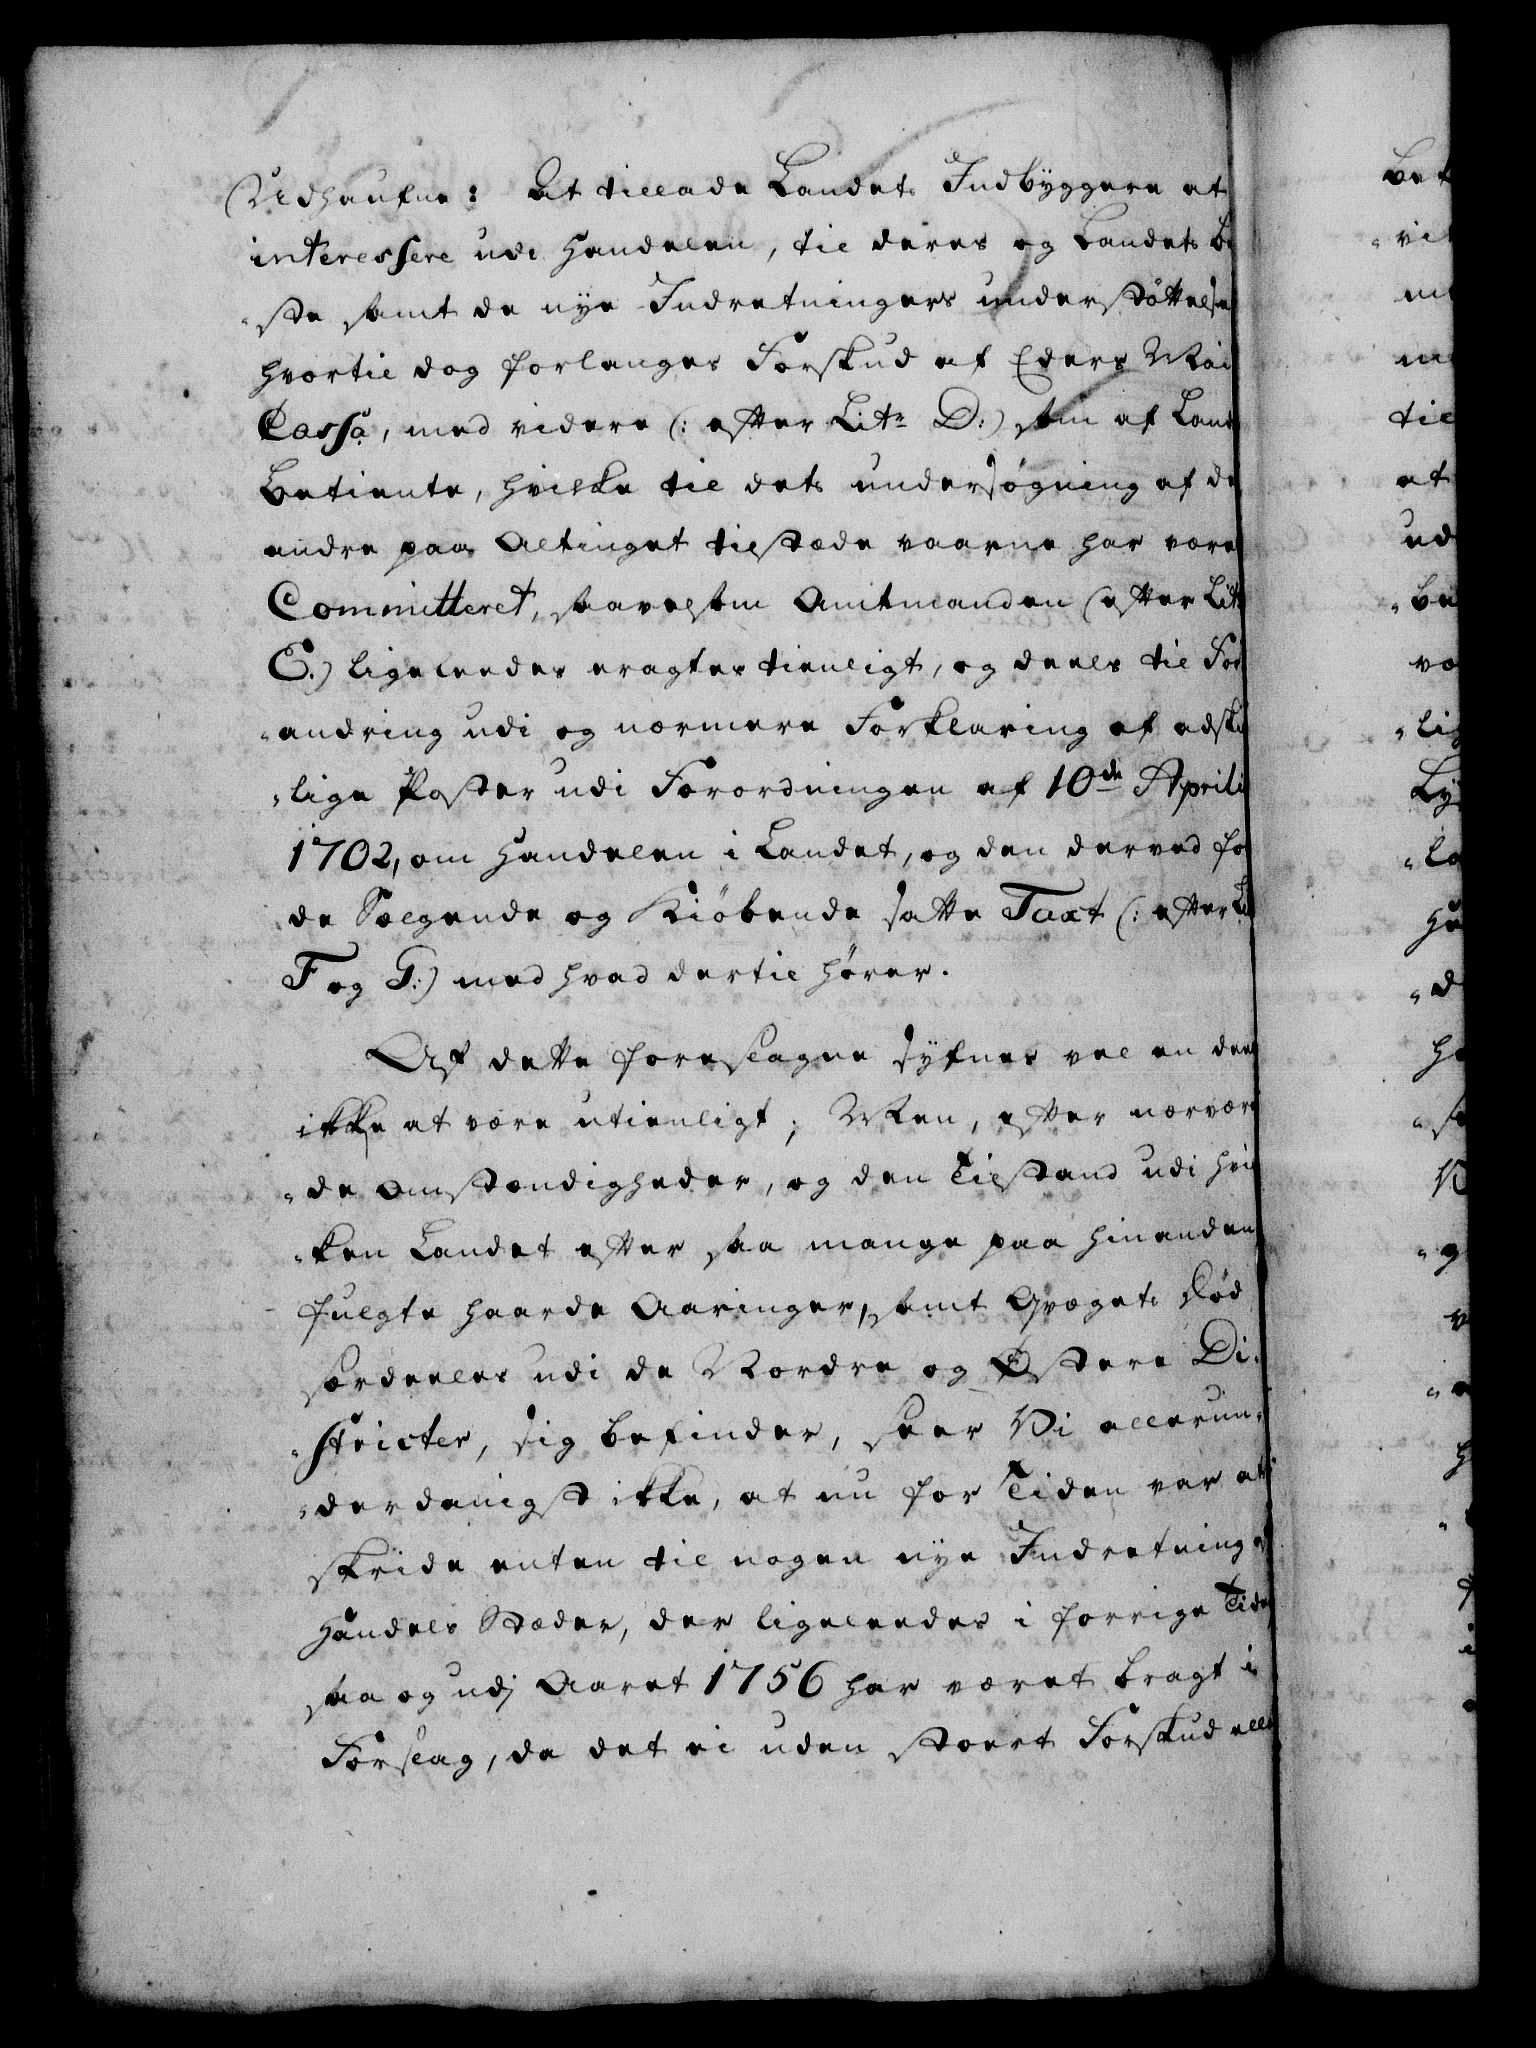 Udhaufne: At tillade Landets Indbyggere at
interessere udi Handelen, til deres og Landets be
„ste samt de nye Indretningers understöttelse
hvortil dog forlanges Forskud af Eders Mai
Cassa, med videre (: efter Litr D:) som af Land
Betiente, hvilke til dets undersøgning af de
andre paa Altinget tilstæde vaarne har være
Committeret, saavelsom Amtmanden (efter Litr
E.) ligeleedes eragtes tienligt, og deels til For
„andring udi og nærmere Forklaring af adski
„lige Poster udi Forordningen af 10de Aprili
1702, om Handelen i Landet, og den derved fo
de Sælgende og Kiöbende satte Taxt (: efter Li
F og G:) med hvad dertil hörer.
Af dette foreslagne syfnes vel en deel
ikke at være utienligt; Men, efter nærvære
„de Omstændigheder, og den Tilstand udi hvil
„ken Landet efter saa mange paa hinanden
fulgte haarde Aaringer, samt Qvægets Död
særdeeles udi de Nordre og Østere Di„
„stricter, sig befinder, seer Vi allerun„
„derdanigst ikke, at nu for Tiden var at
skride enten til nogen nye Indretning af
Handels Stæder, der ligeleedes i forrige Tider
saa og udj Aaret 1756 har været bragt i
Forslag, da det ei uden stoert Forskud elle